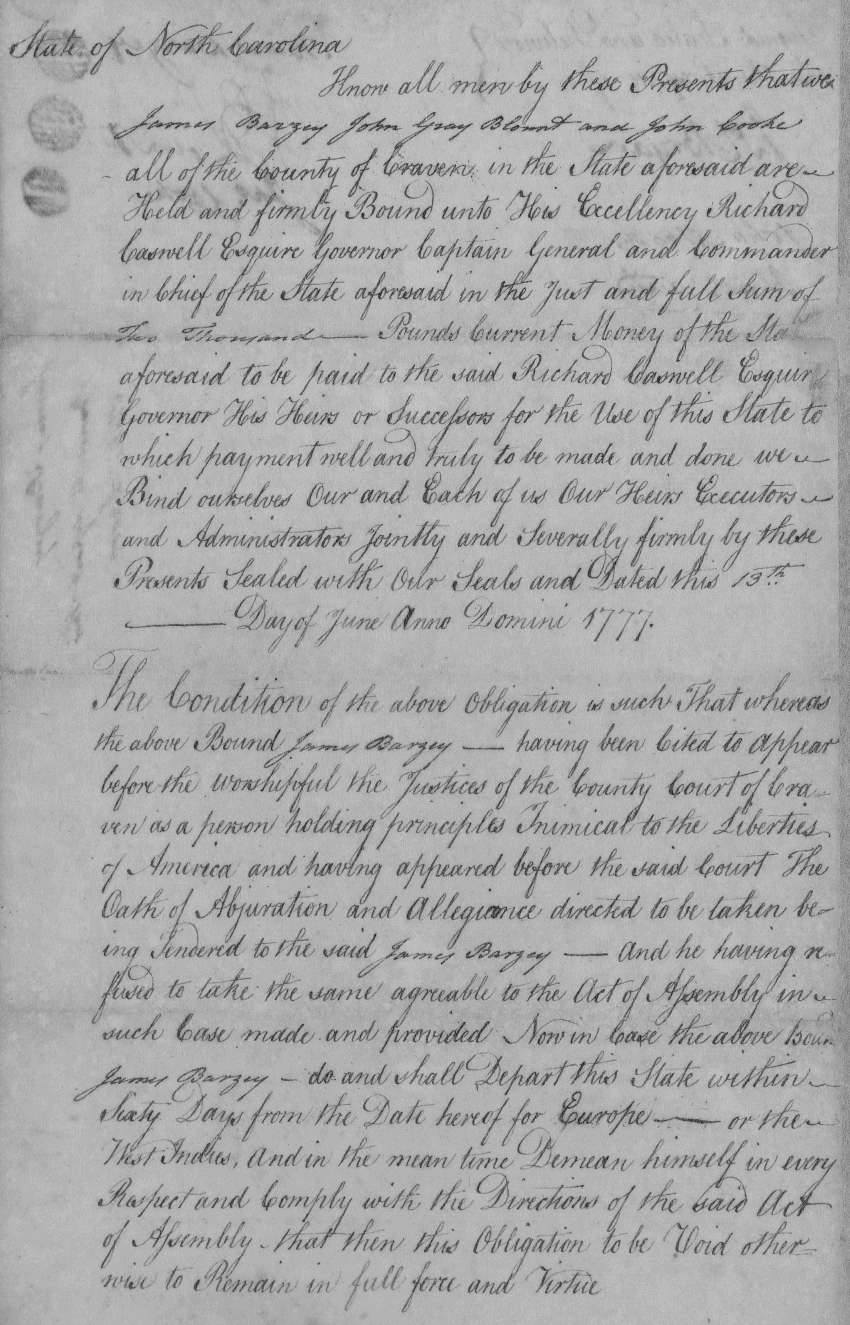 State of North Carolina
Know all men by these Presents that we
James Barzey John Gray Blount and John Cooke
all of the County of Craven in the State aforesaid are
Held and firmly Bound unto His Excellency Richard
Caswell Esquire Governor Captain General and Commander
in Chief of the State aforesaid in the Just and full Sum of
Two Thousand — Pounds Current Money of the Sta
aforesaid to be paid to the said Richard Caswell Esquir
Governor His Heirs or Successors for the Use of this State to
which payment well and truly to be made and done we
Bind ourselves Our and Each of us Our Heirs Executors
and Administrators Jointly and Severally firmly by these
Presents Sealed with Our Seals and Dated this 13th
— Day of June Anno Domini 1777.
The Condition of the above Obligation is such That whereas
the above Bound James Barzey — having been Cited to Appear
before the Worshipful the Justices of the County Court of Cra-
ven as a person holding principles Inimical to the Liberties
of America and having appeared before the said Court The
Oath of Abjuration and Allegiance directed to be taken be-
ing Tendered to the said James Barzey — And he having re-
fused to take the same agreeable to the Act of Assembly in
such Case made and provided Now in Case the above Boun
James Barzey — do and shall Depart this State within
Sixty Days from the Date hereof for Europe — or the
West Indies, And in the mean time Demean himself in every
Respect and Comply with the Directions of the said Act
of Assembly - that then this Obligation to be Void other-
wise to Remain in full force and Virtue